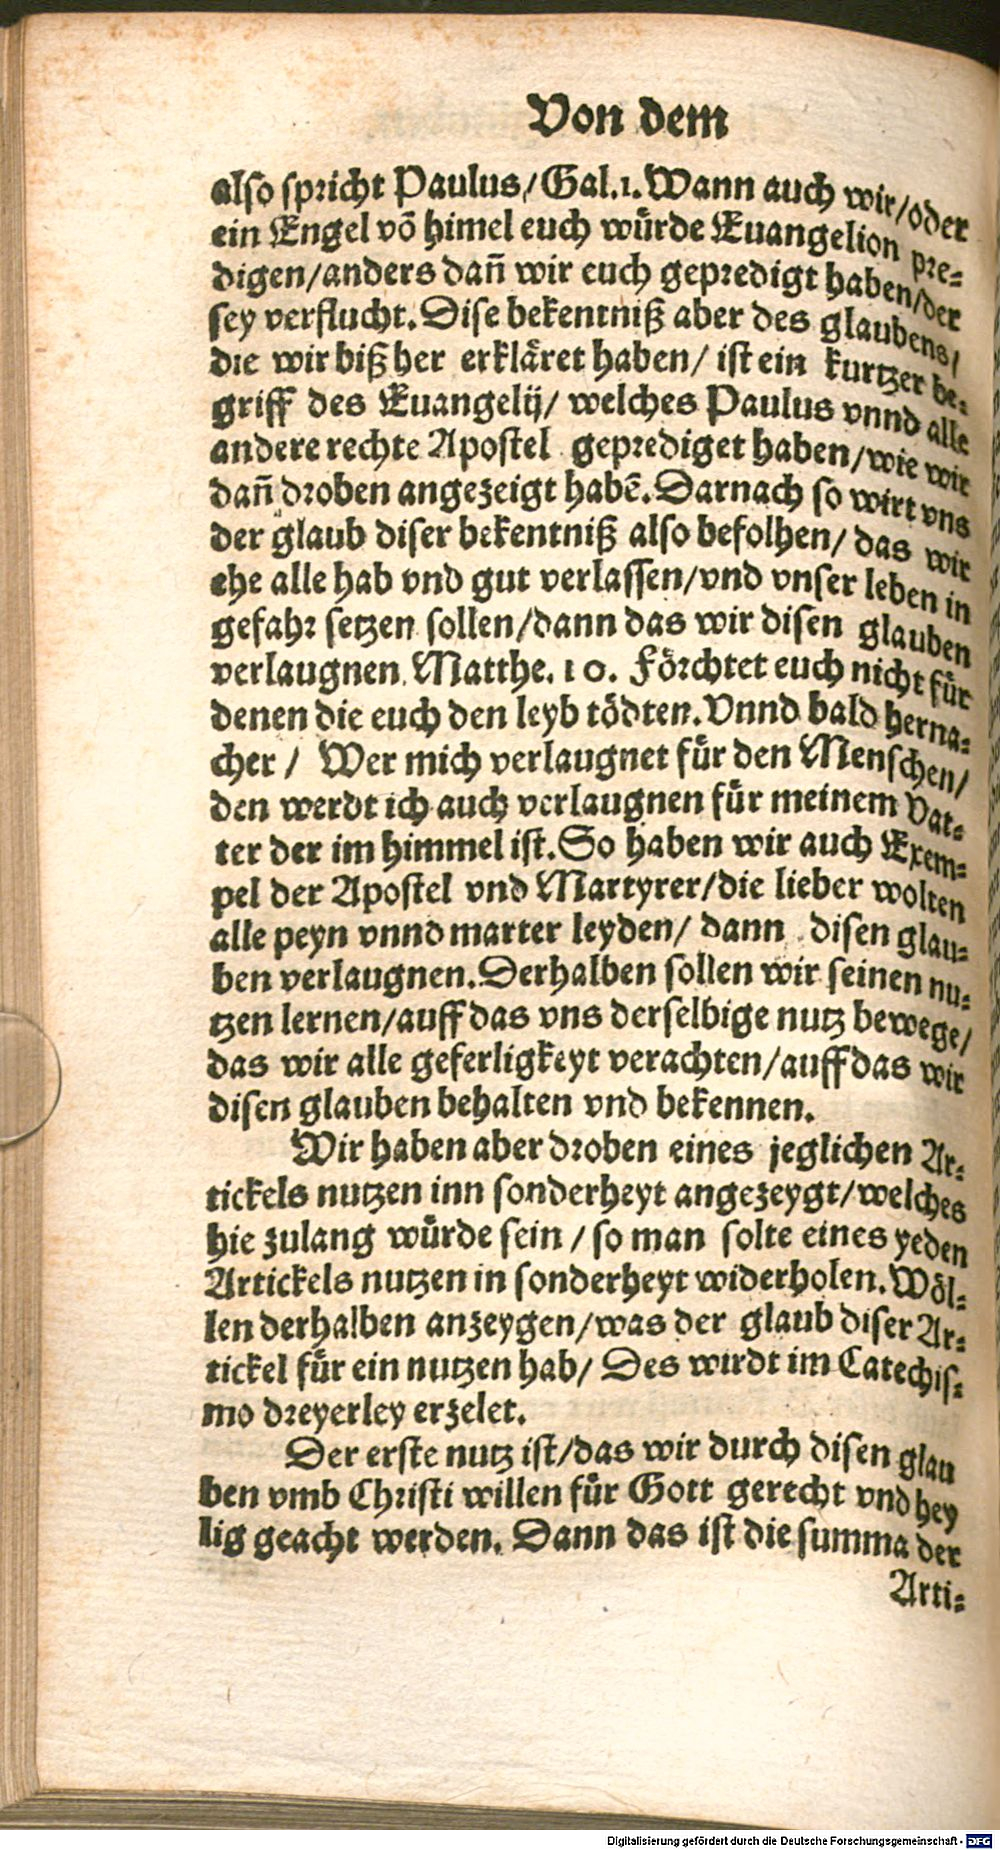 Von dem
also spricht Paulus/Gal.1. Wann auch wir/oder
ein Engel võ himel euch wuͤrde Euangelion pre⸗
digen/anders dañ wir euch gepredigt haben/der
sey verflucht. Dise bekentniß aber des glaubens/
die wir biß her erklaͤret haben/ ist ein kurtzer be⸗
griff des Euangelij/ welches Paulus vnnd alle
andere rechte Apostel geprediget haben/wie wir
dañ droben angezeigt habē. Darnach so wirt vns
der glaub diser bekentniß also befolhen/ das wir
ehe alle hab vnd gut verlassen/vnd vnser leben in
gefahr setzen sollen/dann das wir disen glauben
verlaugnen. Matthe. 10. Foͤrchtet euch nicht fuͤr
denen die euch den leyb toͤdten. Vnnd bald herna⸗
cher / Wer mich verlaugnet fuͤr den Menschen/
den werdt ich auch verlaugnen fuͤr meinem Vat⸗
ter der im himmel ist. So haben wir auch Exem⸗
pel der Apostel vnd Martyrer/die lieber wolten
alle peyn vnnd marter leyden/ dann disen glau⸗
ben verlaugnen. Derhalben sollen wir seinen nu⸗
tzen lernen/auff das vns derselbige nutz bewege/
das wir alle geferligkeyt verachten/auff das wir
disen glauben behalten vnd bekennen.
Wir haben aber droben eines jeglichen Ar⸗
tickels nutzen inn sonderheyt angezeygt/welches
hie zulang wuͤrde sein / so man solte eines yeden
Artickels nutzen in sonderheyt widerholen. Woͤl⸗
len derhalben anzeygen/was der glaub diser Ar⸗
tickel fuͤr ein nutzen hab/ Des wirdt im Catechis⸗
mo dreyerley erzelet.
Der erste nutz ist/das wir durch disen glau
ben vmb Christi willen fuͤr Gott gerecht vnd hey
lig geacht werden. Dann das ist die summa der
Arti⸗
Digitalisierung gefördert durch die Deutsche Forschungsgemeinschaft - DFG